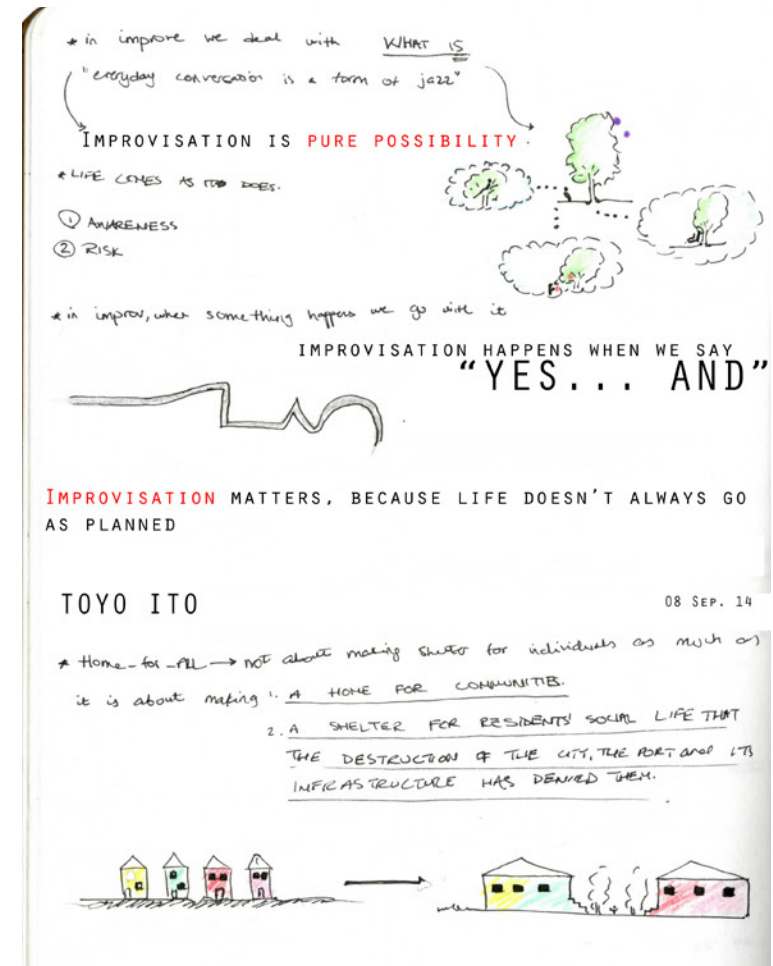 * in improve we deal with WHAT IS
"everyday conversation is a form of jazz"
IMPROVISATION IS PURE POSSIBILITY.
* LIFE COMES AS IT DOES.
① AWARENESS
② RISK
* in improv, when something happens we go with it
IMPROVISATION HAPPENS WHEN WE SAY
"YES... AND"
IMPROVISATION MATTERS, BECAUSE LIFE DOESN'T ALWAYS GO
AS PLANNED
TOYO ITO
08 SEP. 14
* Home-for-All → not about making shelter for individuals as much as
it is about making 1. A HOME FOR COMMUNITIES.
2. A SHELTER FOR RESIDENTS' SOCIAL LIFE THAT
THE DESTRUCTION OF THE CITY, THE PORT and ITS
INFRASTRUCTURE HAS DENIED THEM.